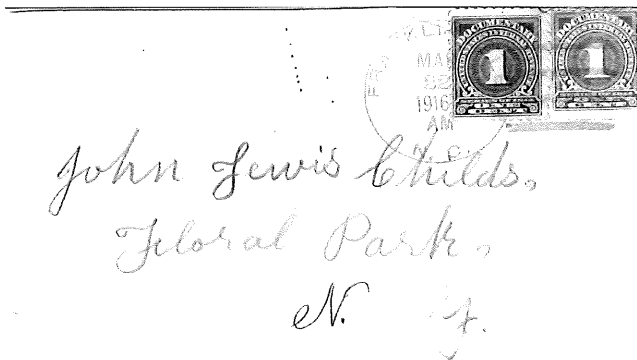 MAR
1916
AM
N.C.
DOCUMENTARY DOCUMENTARY
1 1
John Lewis Childs,
Floral Park,
N. Y.